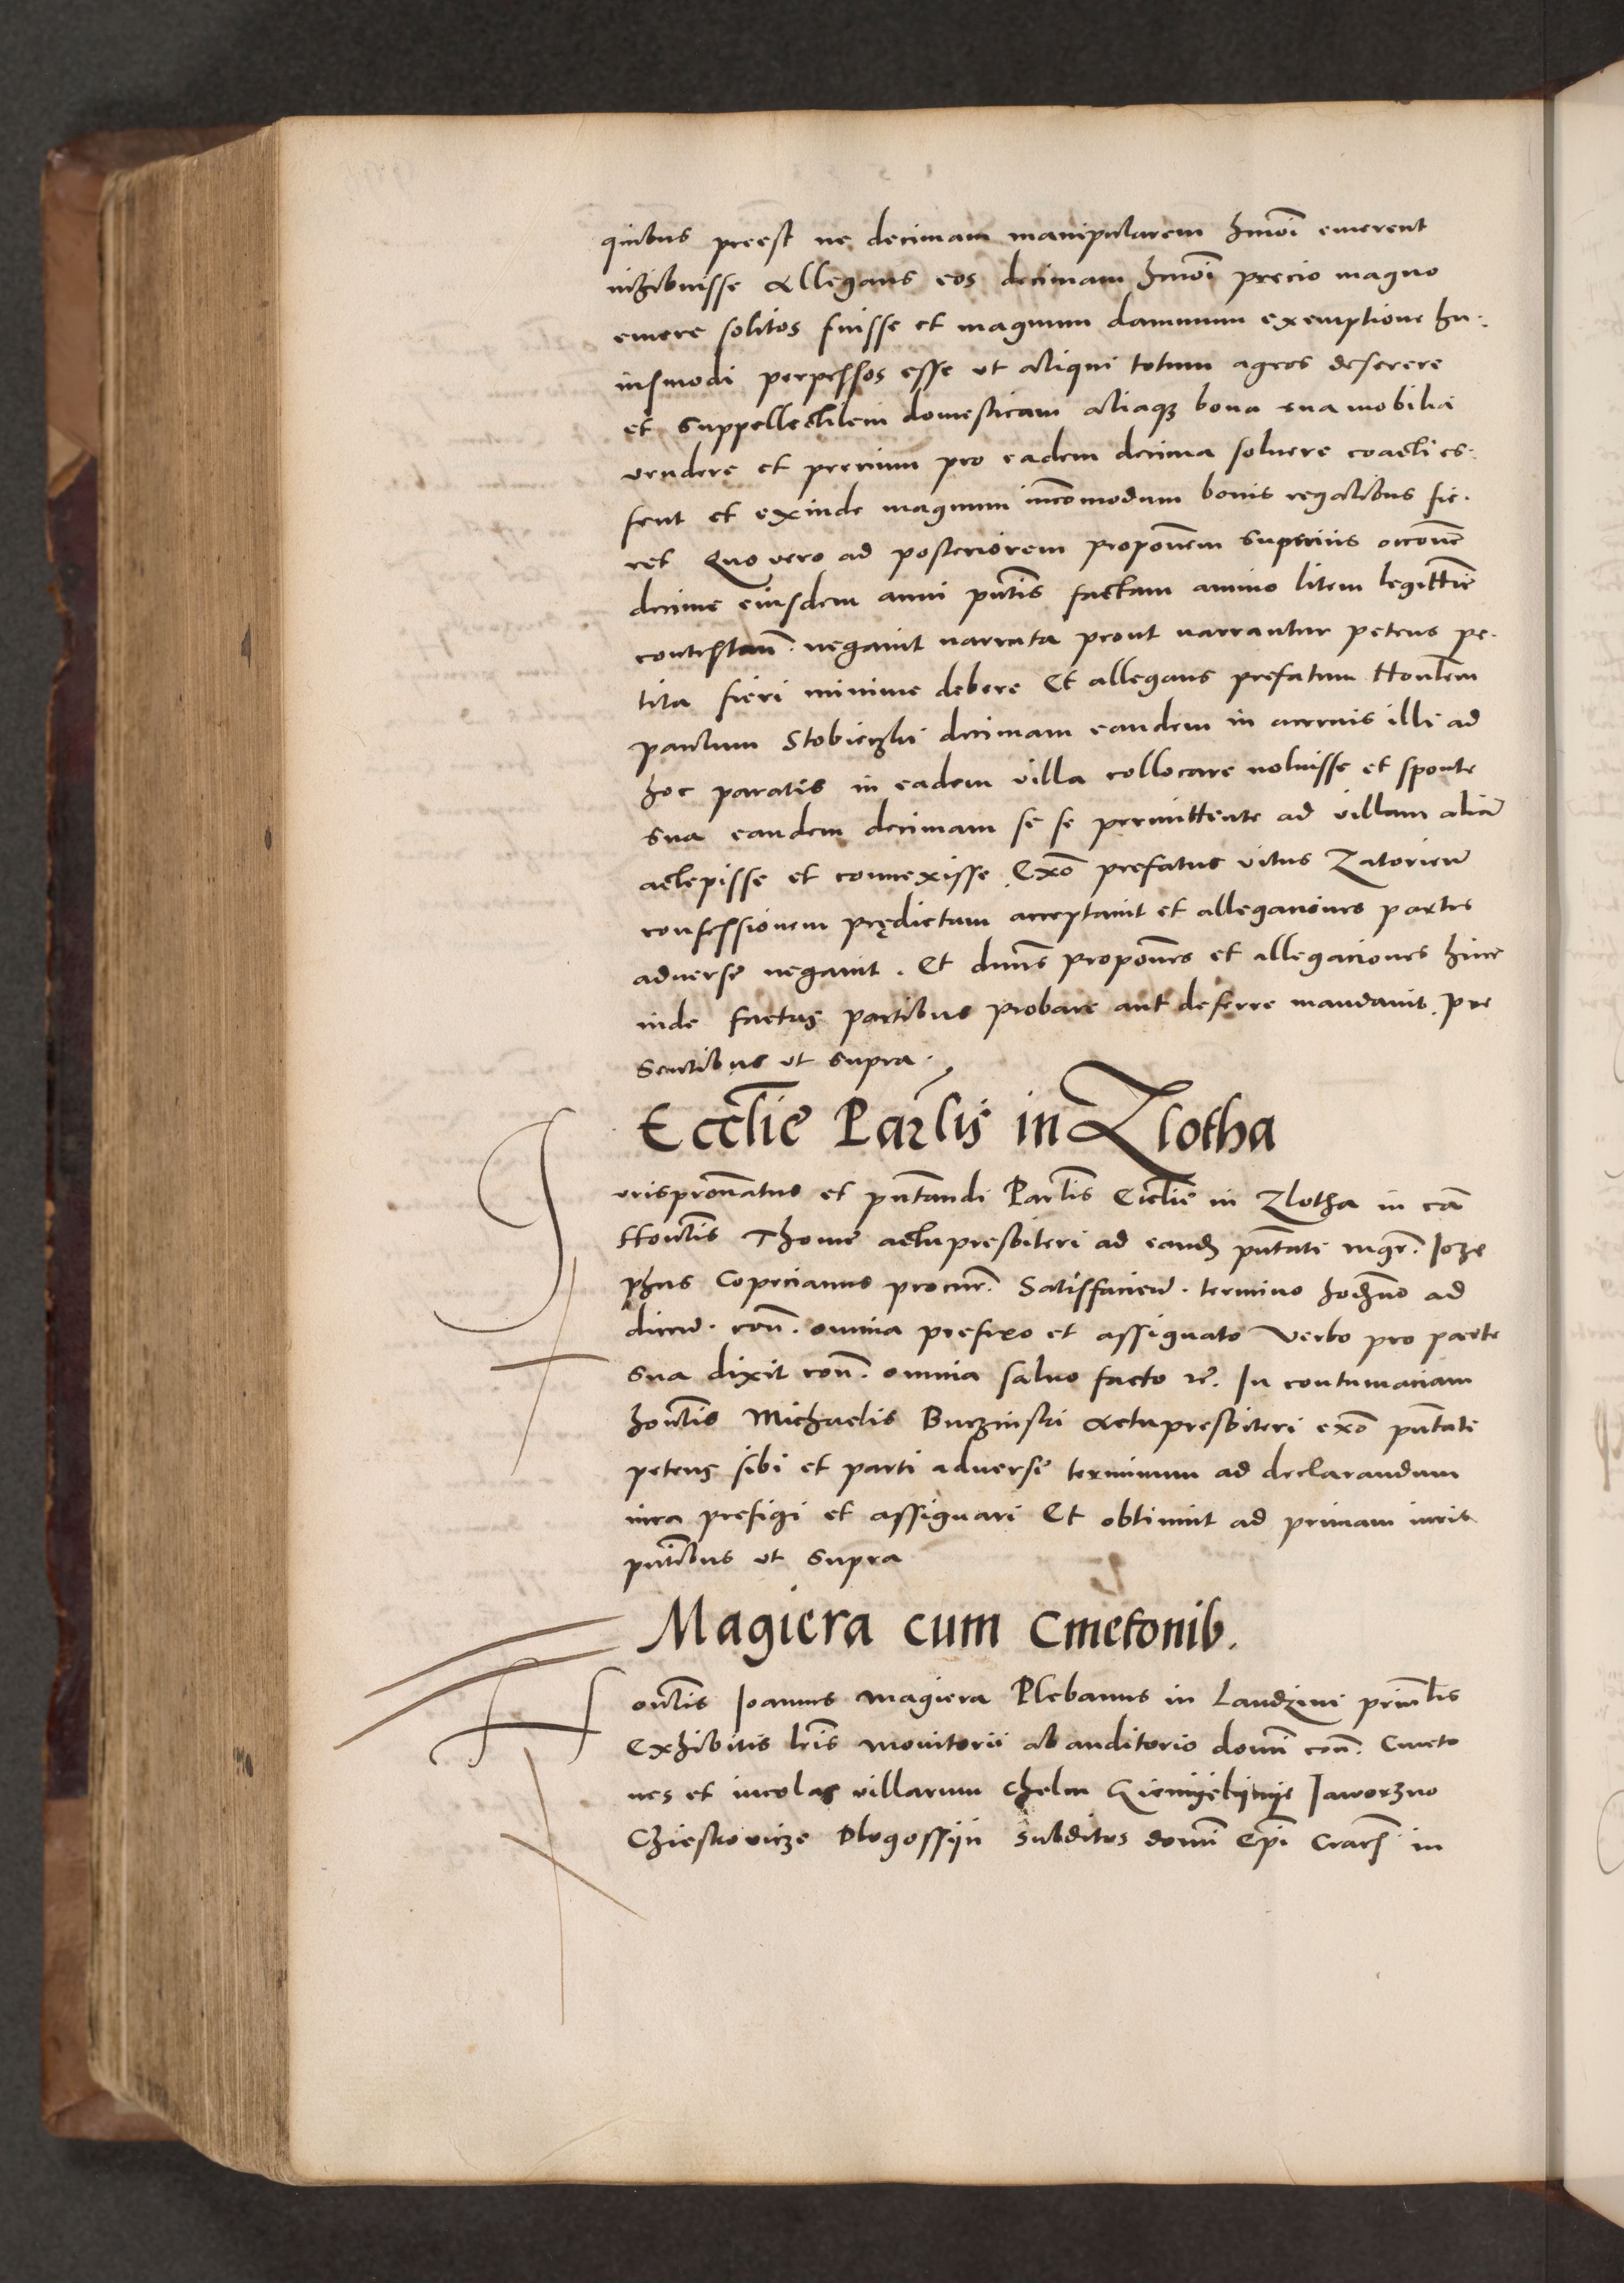 quibus preest ne decimam manipularem hmõi emerent
inhibuisse allegans eos decimam hmõi precio magno
emere solitos fuisse et magnum damnum exemptione hu-
iusmodi perpessos esse ut aliqui totum agros deserere
et suppellectilem domesticam aliaq₃ bona sua mobilia
vendere et precium pro eadem decima solvere coacti es-
sent et exinde magnum incõmodum bonis regalibus fie-
ret Quo vero ad posteriorem propoñem superius
decime eiusdem anni pñtis factam animo litem legittime
contestañ. negavit narrata prout narrantur petens pe-
tita fieri minime debere Et allegans prefatum Honlem
paulum Stobieczki decimam eandem in acervis illi ad
hoc paratis in eadem villa collocare noluisse et sponte
sua eandem decimam se se permittente ad villam aliã
accepisse et convexisse Exõ prefatus vitus Zatorien̄
confessionem prędictam acceptavit et allegaciones partis
adverse negavit. Et dnus propoñes et allegaciones hinc
inde factas partibus probare aut deferre mandavit. pre
sentibus ut supra.
Ecctie Parlis in Zlotha
Jurisproñatus et pñtandi Parlis Ecctie in Zlotha in cã
Honlis Thome actu presbiteri ad eand pñtati mgr. Joze
phus Coprcianus procur. Satisfacien̄. termino hodño ad
dicen̄. coñ. omnia prefixo et assignato verbo pro parte
sua dixit coñ. omnia salvo facto rē. In contumaciam
honlis Michaelis Buczinski actu presbiteri exõ pñtati
petens sibi et parti adverse terminum ad declarandum
iura prefigi et assignari Et obtinuit ad primam iuris
pñtibus ut supra
Magiera cum Cmetonib.
Honlis Joannes Magiera Plebanus in Landzini
Exhibitis lris monitorii ab auditorio domi coñ. Cmeto
nes et incolas villarum Chelm Jaworzno
Czieskovicze Dlugossyn subditos domi Epi Crac in